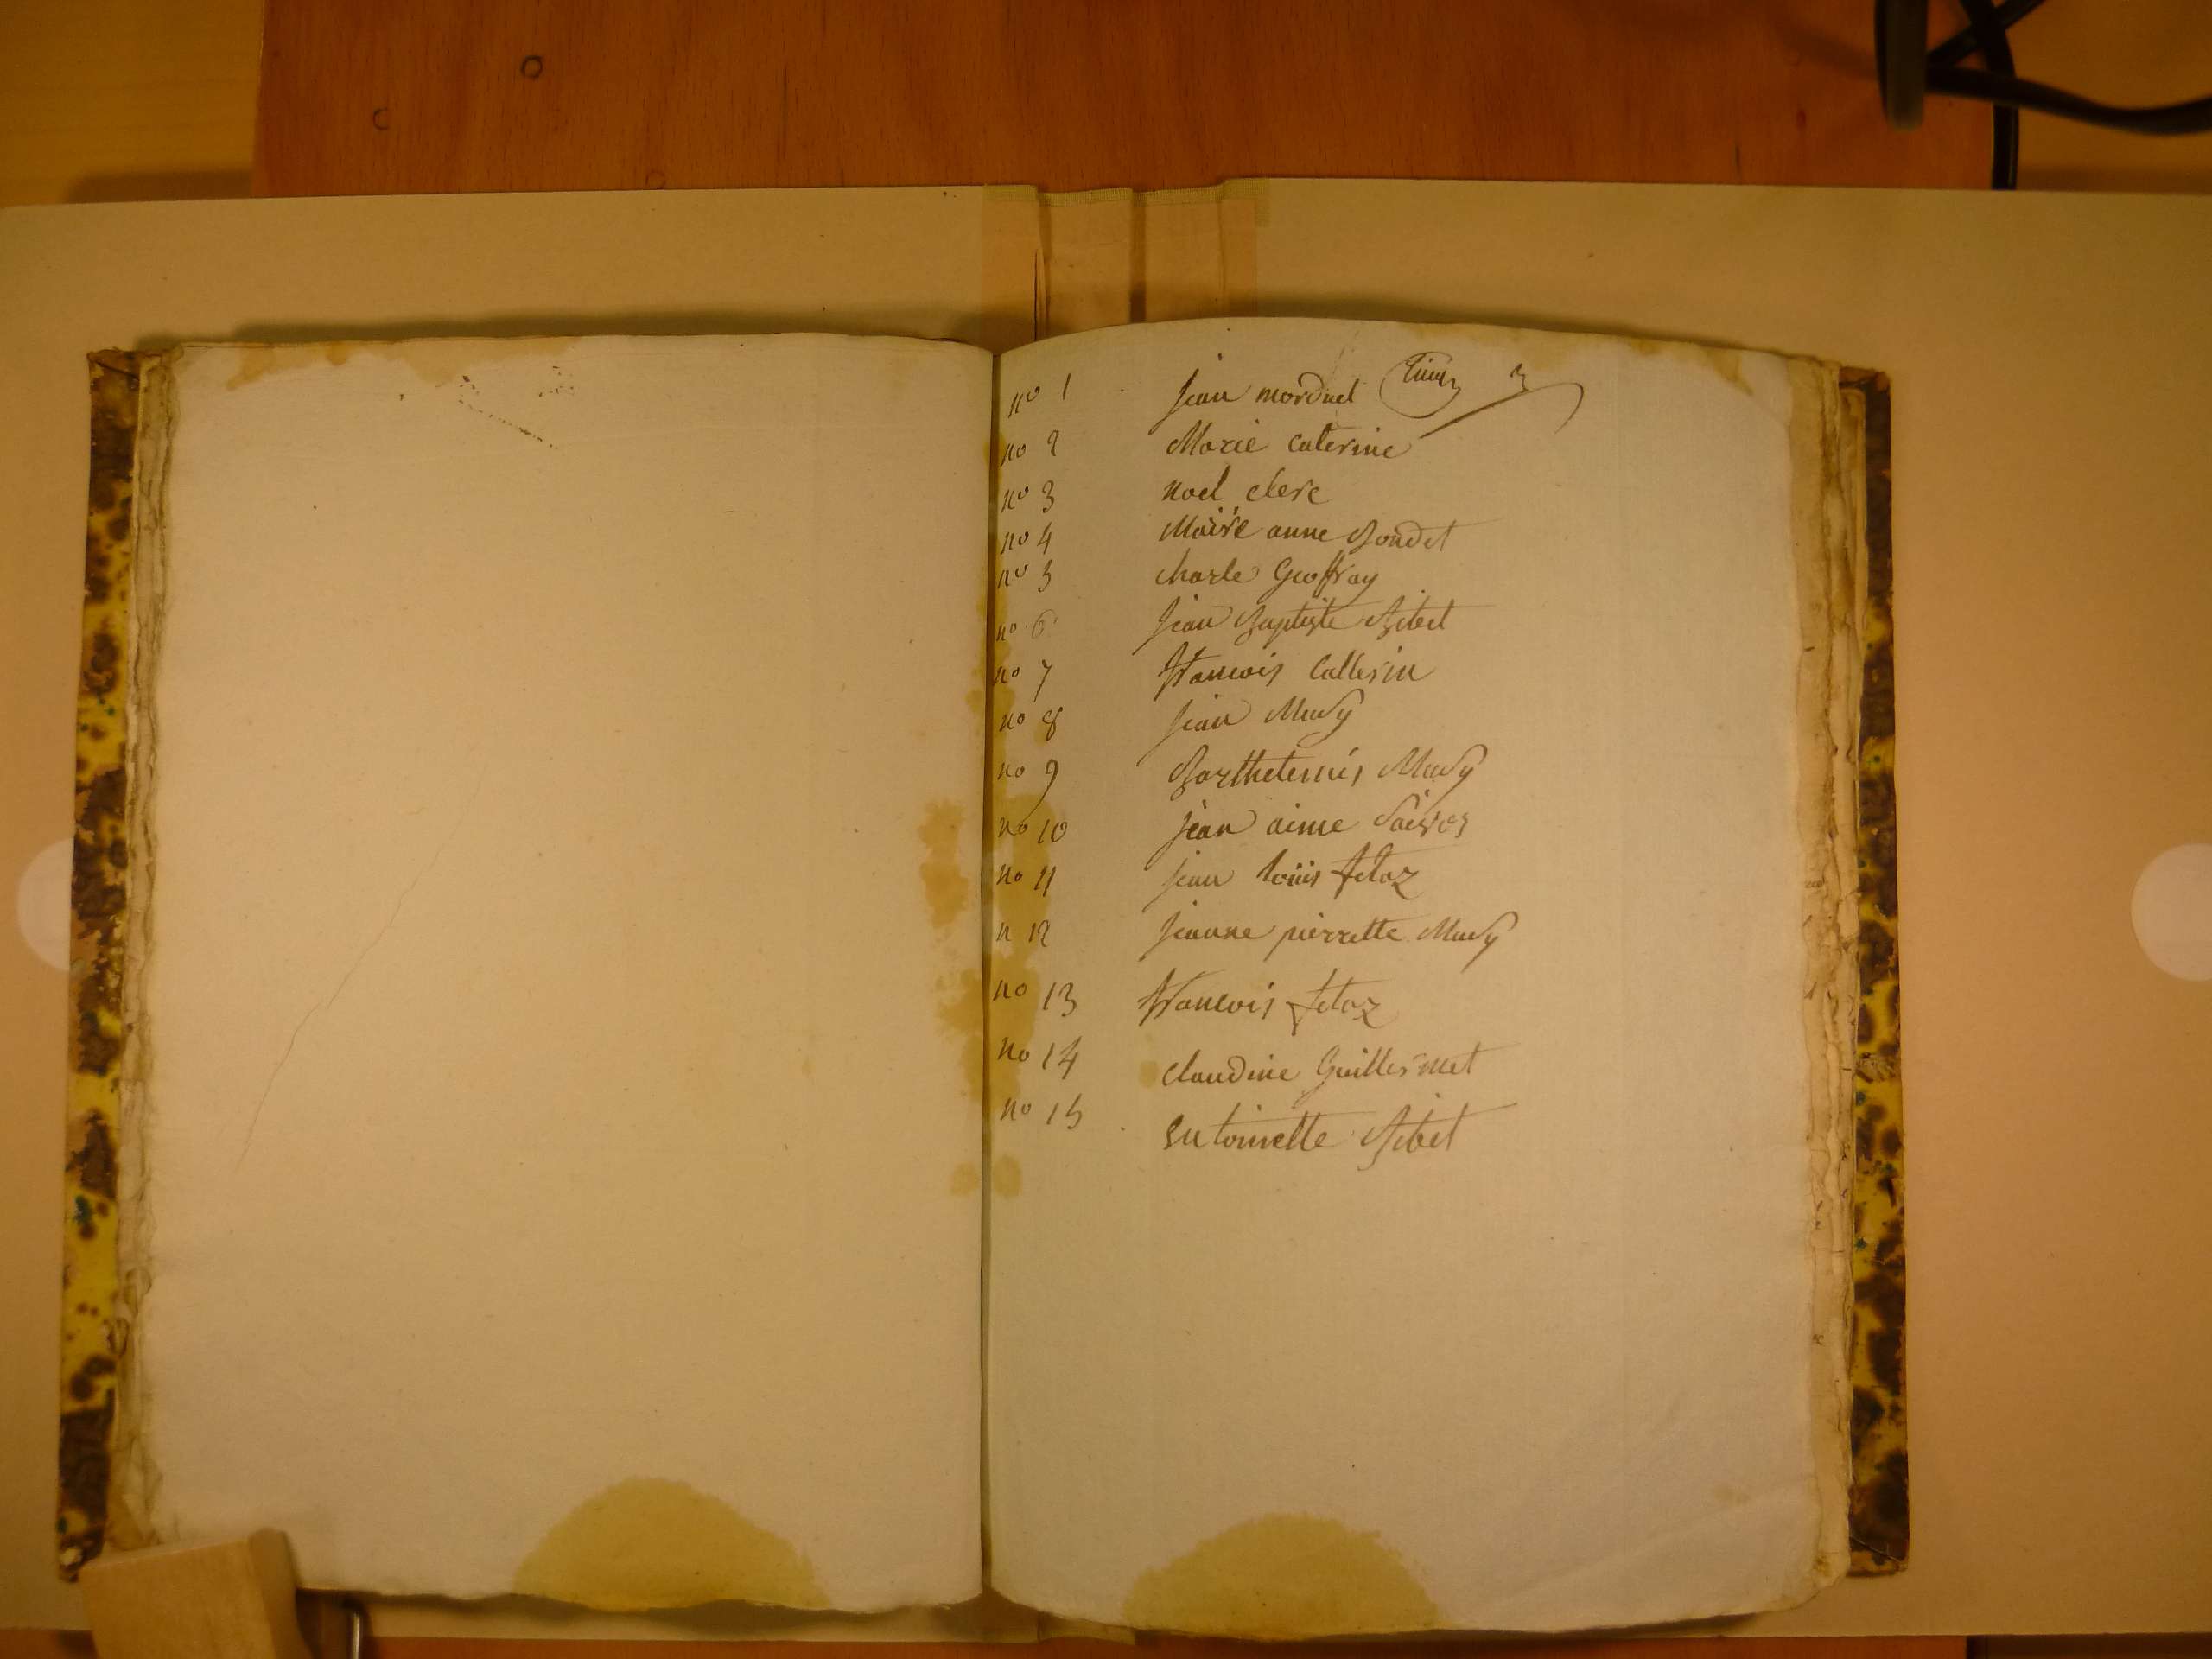 no 1 jean morduel
no 2 Marie caterine
no 3 noel clerc
no 4 Mairie anne Bondet
no 5 charle Geoffray
no 6 jean Baptiste Bibet
no 7 francois Catterin
no 8 jean Mudy
no 9 Barthelemis Mudy
no 10 jean aime
no 11 jean loüis fetaz
n 12 jeanne pierrette Mudy
no 13 francois fetaz
no 14 claudine Guillermet
no 15 entoinette Bibet